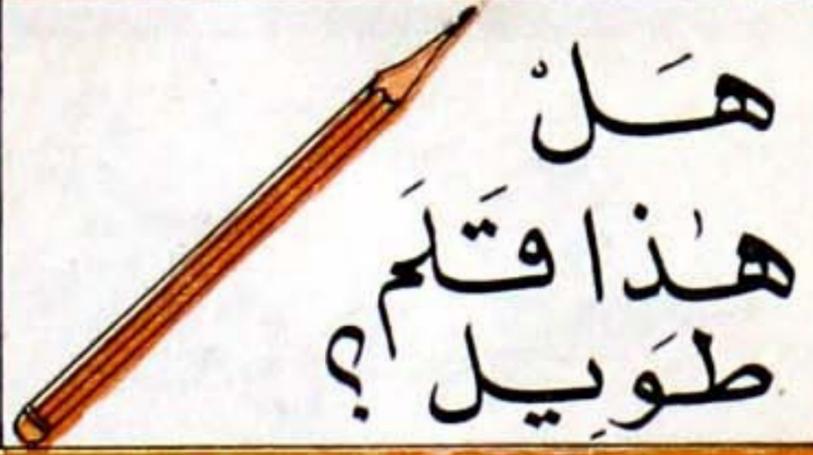 هَلْ
هٰذا قَلَم
طَوِيل؟